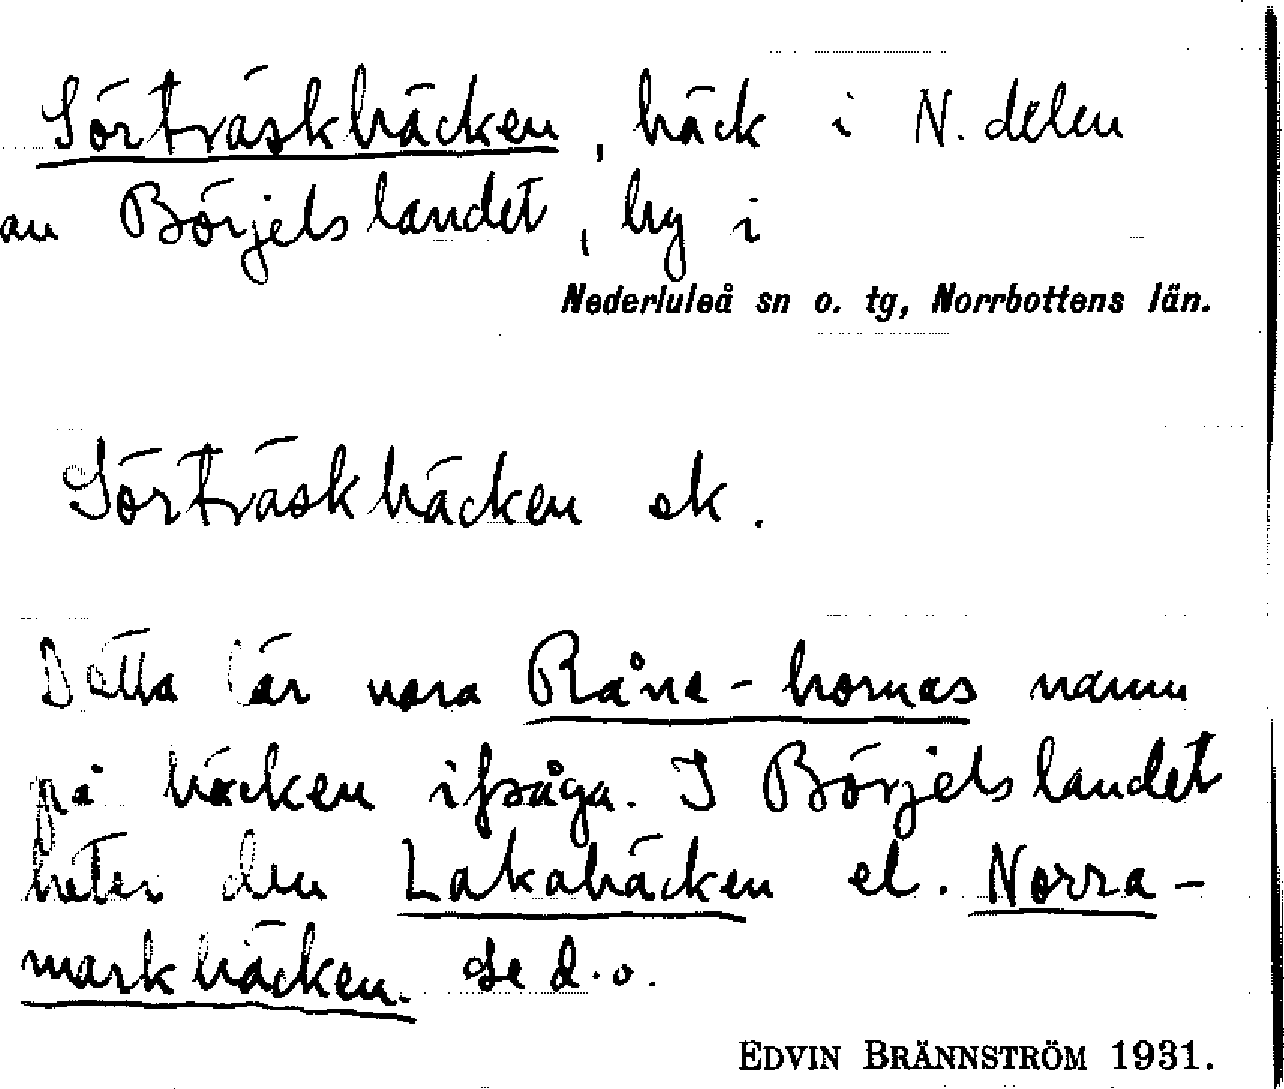 Sörträskbäcken, bäck i N. delen
av Börjelslandet, by i
Nederluleå sn o. tg, Norrbottens län.
Sörträskbäcken ek.
Detta lär vara Råne-bornas namn
på bäcken ifråga. I Börjelslandet
heter den Lakabäcken el. Norra-
markbäcken. Se d.o.
EDVIN BRÄNNSTRÖM 1931.